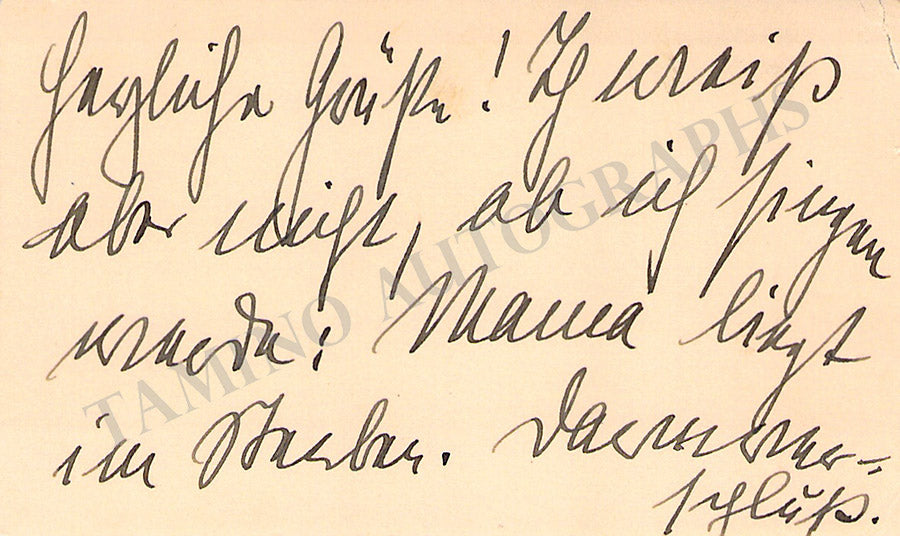 Herzliche Grüße! Ich weiß
aber nicht, ob ich singen
werde: Mama liegt
im Sterben. Darmver=
schluß.
TAMINO AUTOGRAPHS